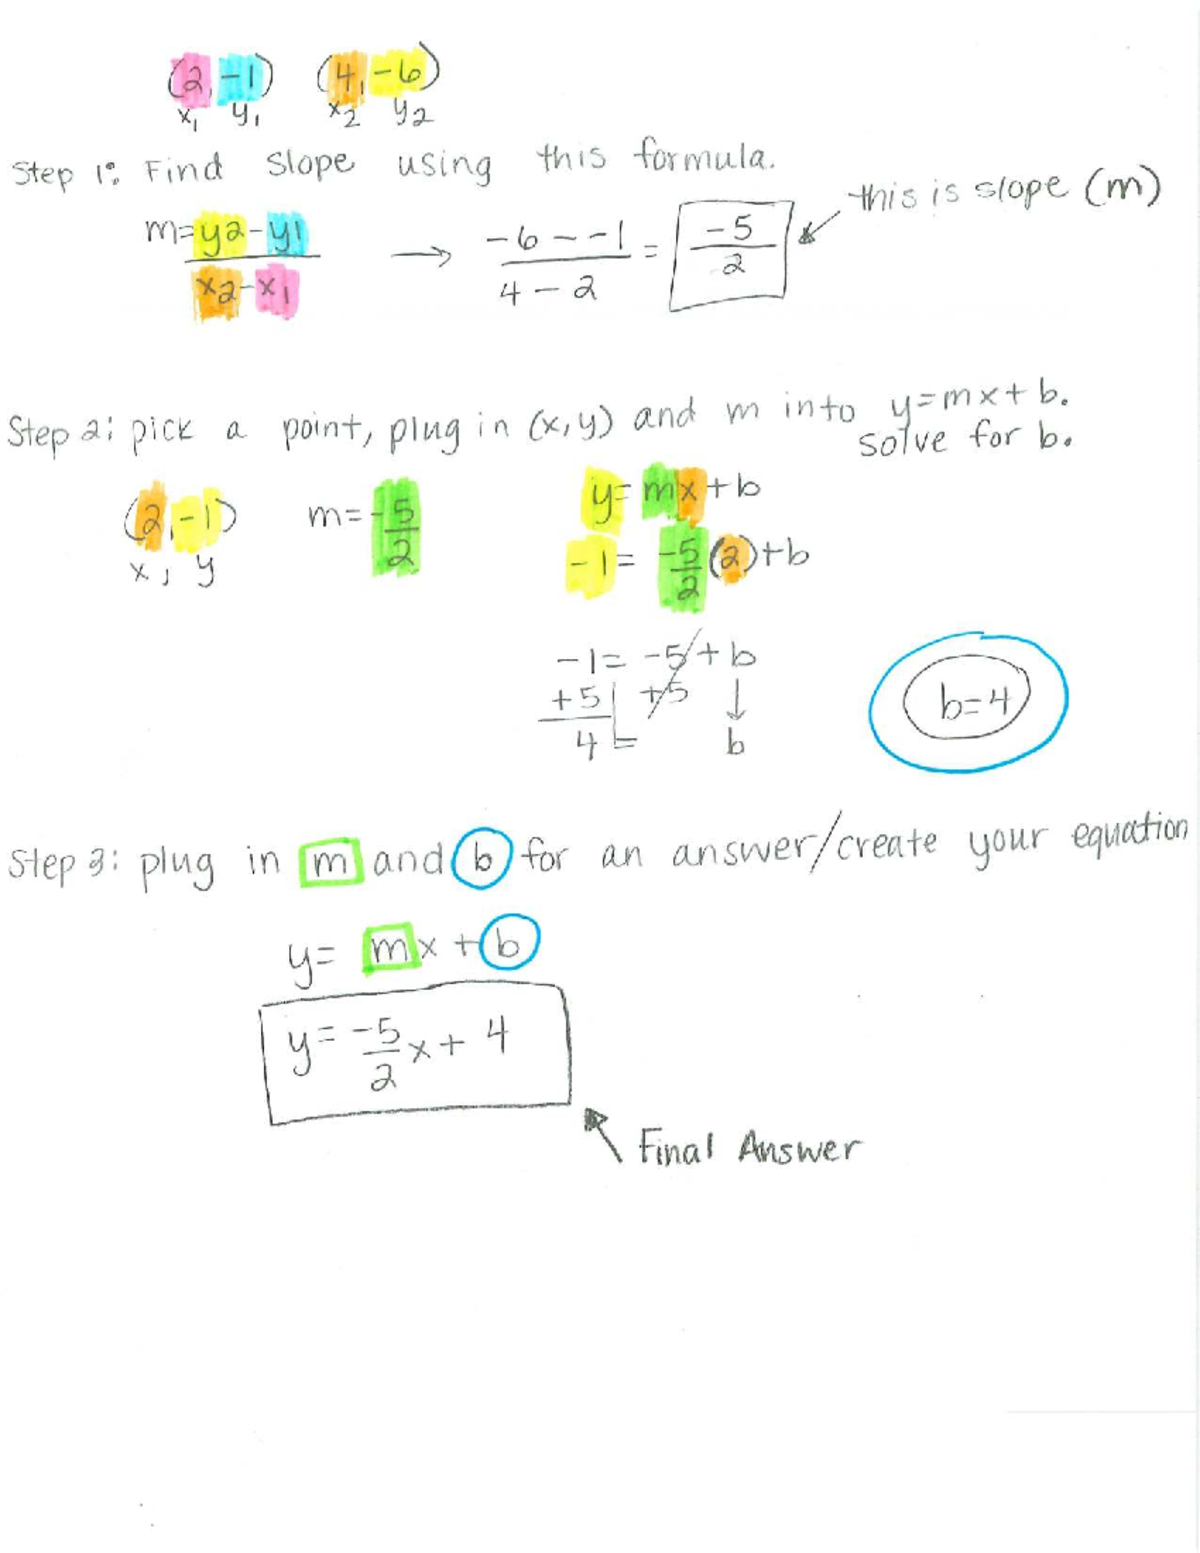 (2, -1) (4, -6)
x₁ y₁ x₂ y₂
Step 1: Find slope using this formula.
m = y2 - y1 / x2 - x1 → -6 - -1 / 4 - 2 = -5/2 this is slope (m)
Step 2: pick a point, plug in (x,y) and m into y=mx+b.
solve for b.
(2, -1) m = -5/2 y = mx + b
x, y -1 = -5/2 (2) + b
-1 = -5 + b
+5 +5 ↓
4 = b
b=4
Step 3: plug in m and b for an answer/create your equation
y = mx + b
y = -5/2 x + 4
Final Answer